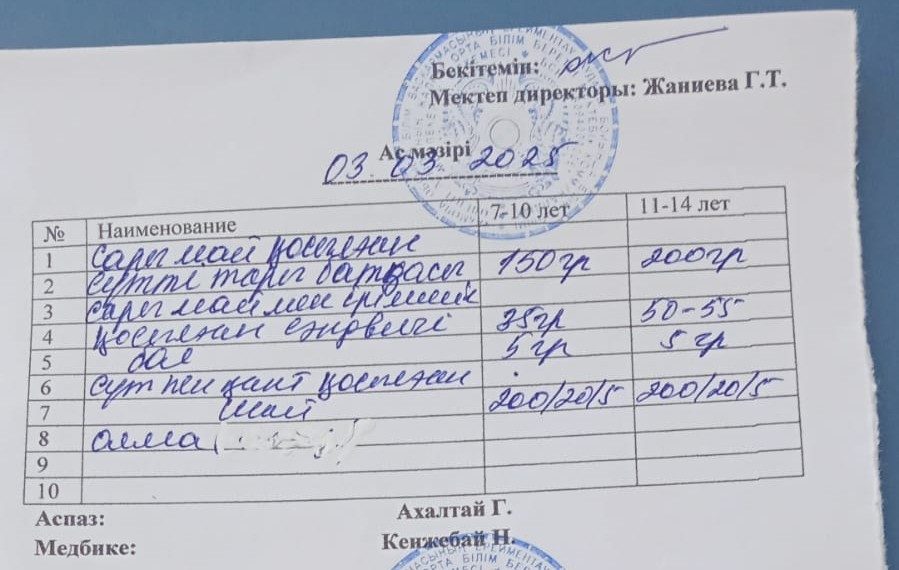 Бекітемін:
Мектеп директоры: Жаниева Г.Т.
Ас мәзірі
03.03.2025
№ Наименование 7-10 лет 11-14 лет
1 сары май қосылған
2 сүтті тары ботқасы 150гр 200гр
3 сары май мен ірімшік
4 қосылған сэндвичі 35гр 50-55
5 бал 5гр 5гр
6 сүт пен қант қосылған
7 шай 200/20/5 200/20/5
8 алма
9
10
Аспаз: Ахалтай Г.
Медбике: Кенжебай Н.